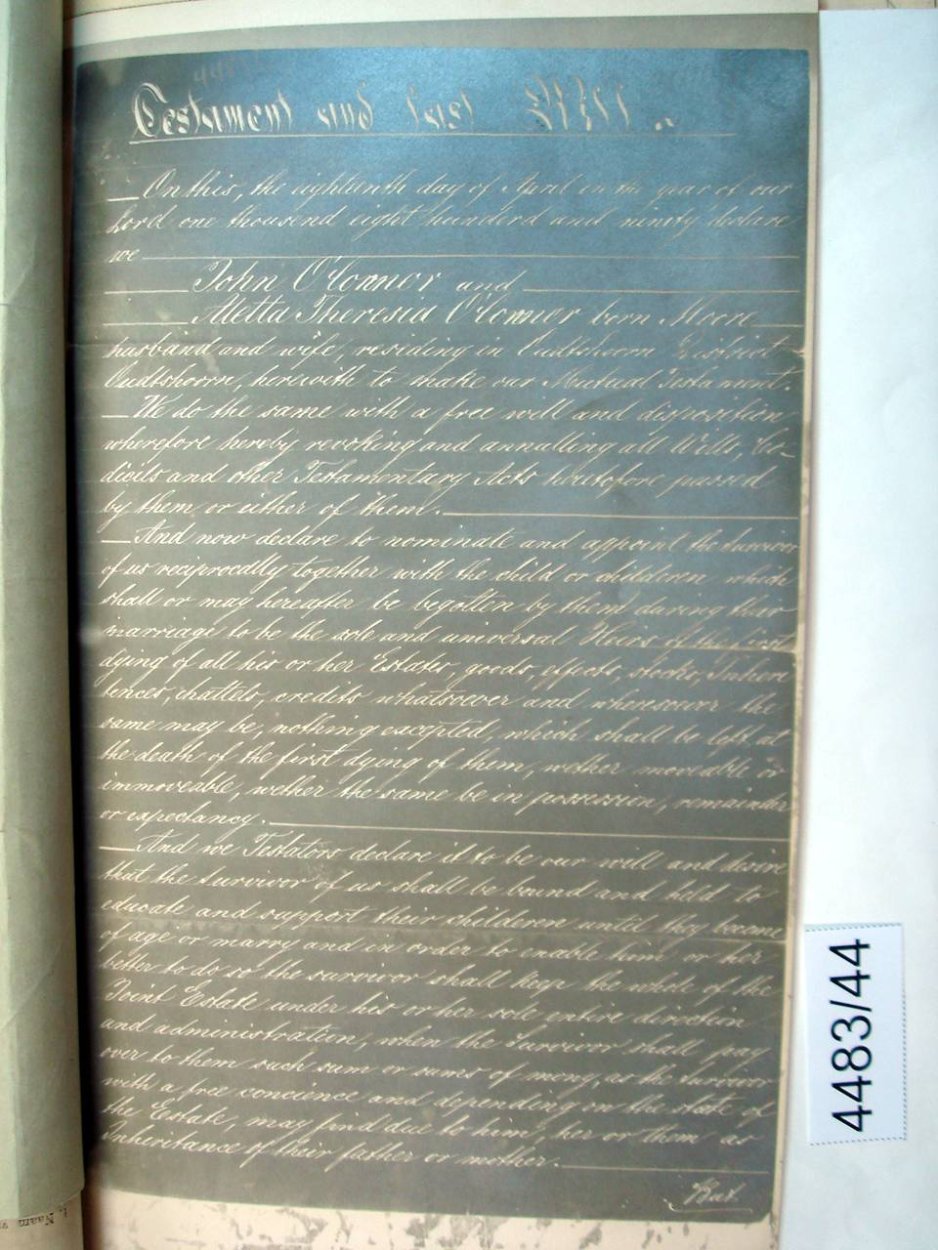 Testament and last Will.
On this, the eighteenth day of April in the year of our
Lord one thousand eight hunderd and ninety declare
we
John O'Connor and
Metta Theresia O'Connor born Moore
husband and wife, residing in Oudtshoorn District
Oudtshoorn, herewith to make our Mutual Testament.
We do the same with a free will and disposition
wherefore hereby revoking and annulling all Wills, Co-
dicils and other Testamentary Acts heretofore passed
by them or either of them.
And now declare to nominate and appoint the Survivor
of us reciprocally together with the child or childeren which
shall or may hereafter be begotten by them during their
marriage to be the sole and universal Heirs of the first
dying of all his or her Estates, goods, effects, stocks, Inheri
tences, chattels, credits whatsoever and wheresoever the
same may be, nothing excepted, which shall be left at
the death of the first dying of them, wether moveable or
immoveable, wether the same be in possession, remainder
or expectancy.
And we Testators declare it to be our will and desire
that the Survivor of us shall be bound and held to
educate and support their childeren until they become
of age or marry and in order to enable him or her
better to do so the survivor shall keep the whole of the
Joint Estate under his or her sole entire direction
and administration, when the Survivor shall pay
over to them such sum or sums of mony, as the Survivor
with a free concience and depending on the state of
the Estate, may find due to him, her or them as
Inheritance of their father or mother.
But.
4483/44